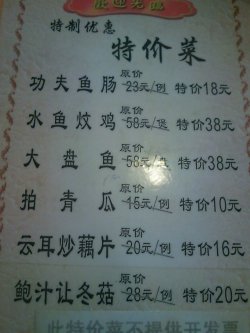 欢迎光临
特制优惠
特价菜
功夫鱼肠 原价23元/例 特价18元
水鱼炆鸡 原价58元/煲 特价38元
大盘鱼 原价58元/盘 特价38元
拍青瓜 原价15元/例 特价10元
云耳炒藕片 原价20元/例 特价16元
鲍汁让冬菇 原价28元/例 特价20元
此特价菜不提供开发票